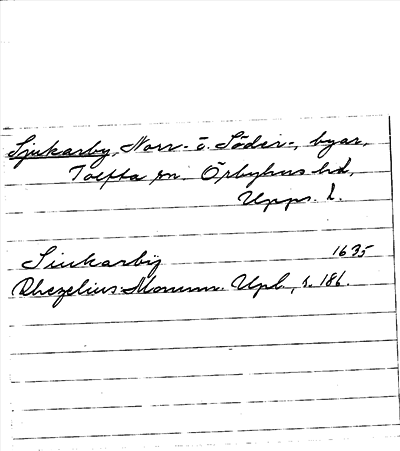 Sjukarby, Norr- o. Söder-, byar,
Tolfta sn. Örbyhus hd,
Upps. l.
Siukarbij 1635
Rhezelius Monum. Upl., s. 186.